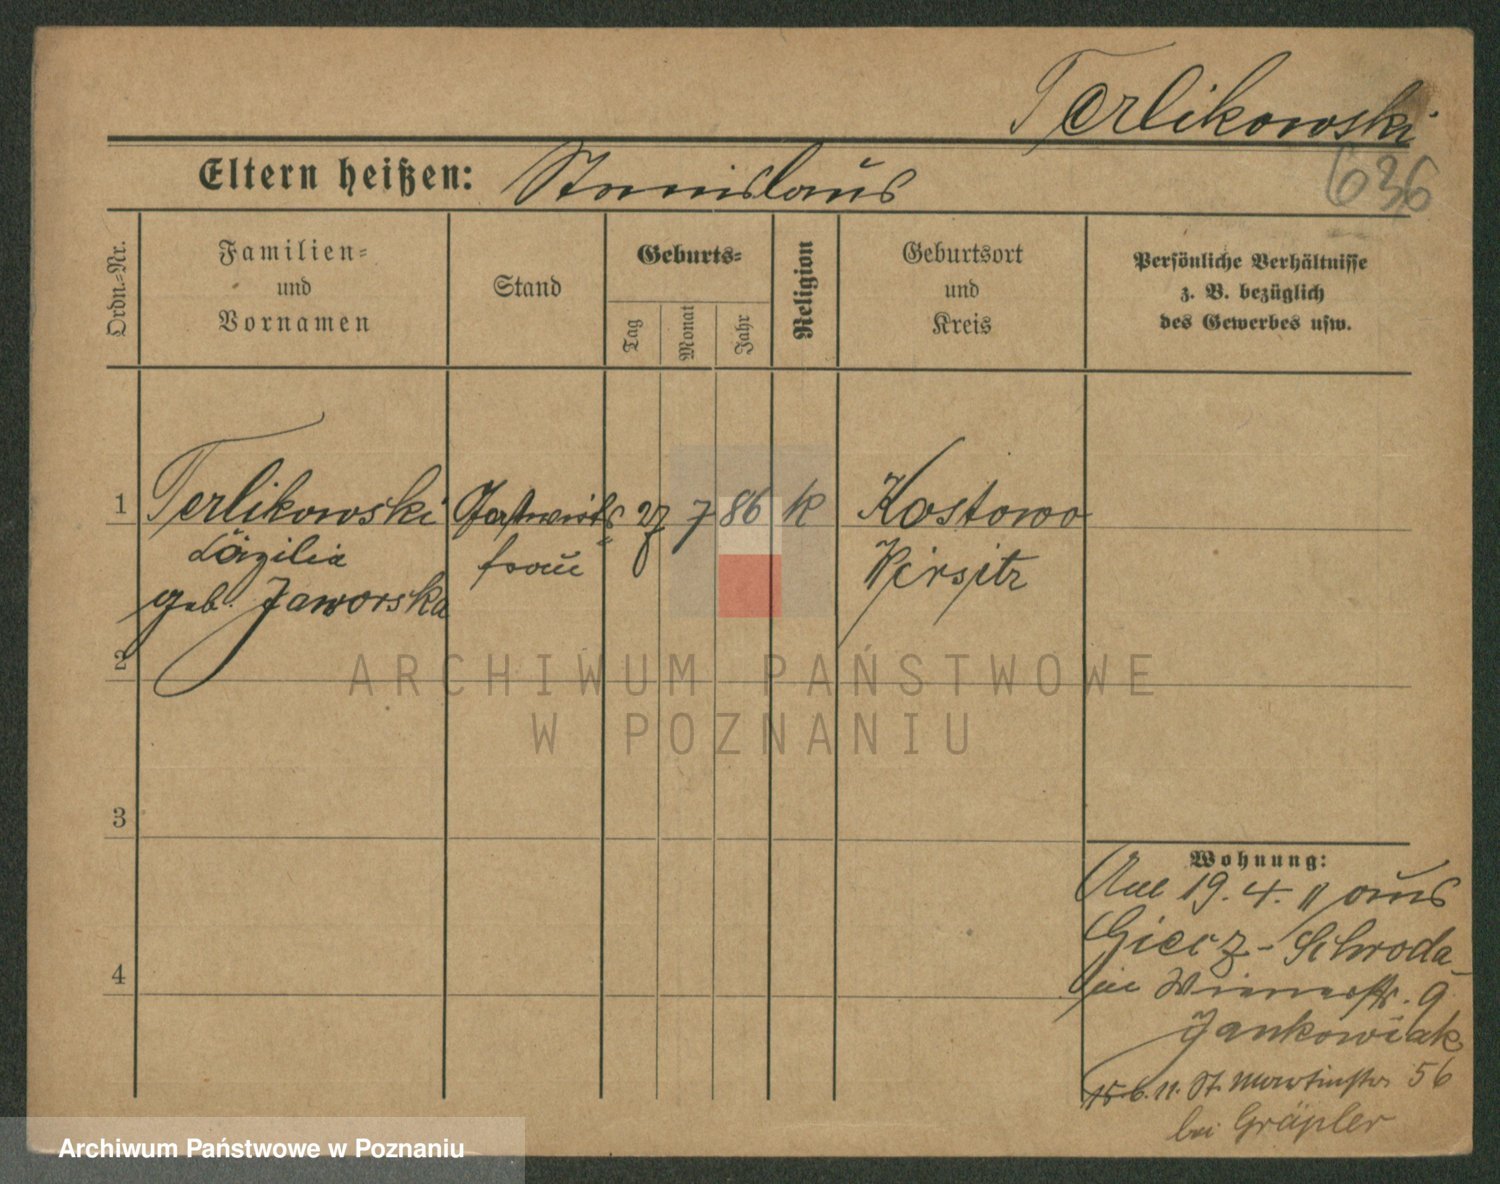 Terlikowski
636
Eltern heißen: Stanislaus
Ordn.-Nr.
Familien-
und
Vornamen
Stand
Geburts-
Tag
Monat
Jahr
Religion
Geburtsort
und
Kreis
Persönliche Verhältnisse
z. B. bezüglich
des Gewerbes usw.
1 Terlikowski Gastwirts 27 7 86 k Kostowo
Cäzilia frau Wirsitz
geb. Jaworska
2
3
4
Wohnung:
19. 4. 11 aus
Giecz - Schroda
in Wienerstr. 9
Jankowiak
15. 6. 11. St. Martinstr 56
bei Gräpler
ARCHIWUM PAŃSTWOWE
W POZNANIU
Archiwum Państwowe w Poznaniu